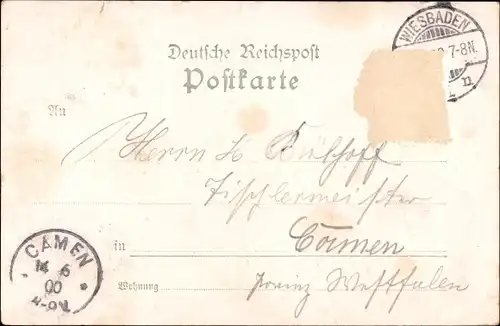 WIESBADEN
7-8N.
Deutsche Reichspost
Postkarte
An
Herrn H. Bülhoff
Tischlermeister
in Camen
Wohnung Provinz Westfalen
CAMEN
14 6
00